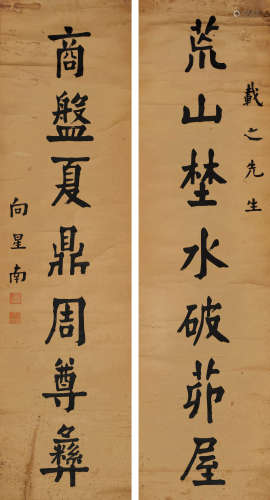 荒山埜水破茆屋
載之先生
商盤夏鼎周尊彝
向星南